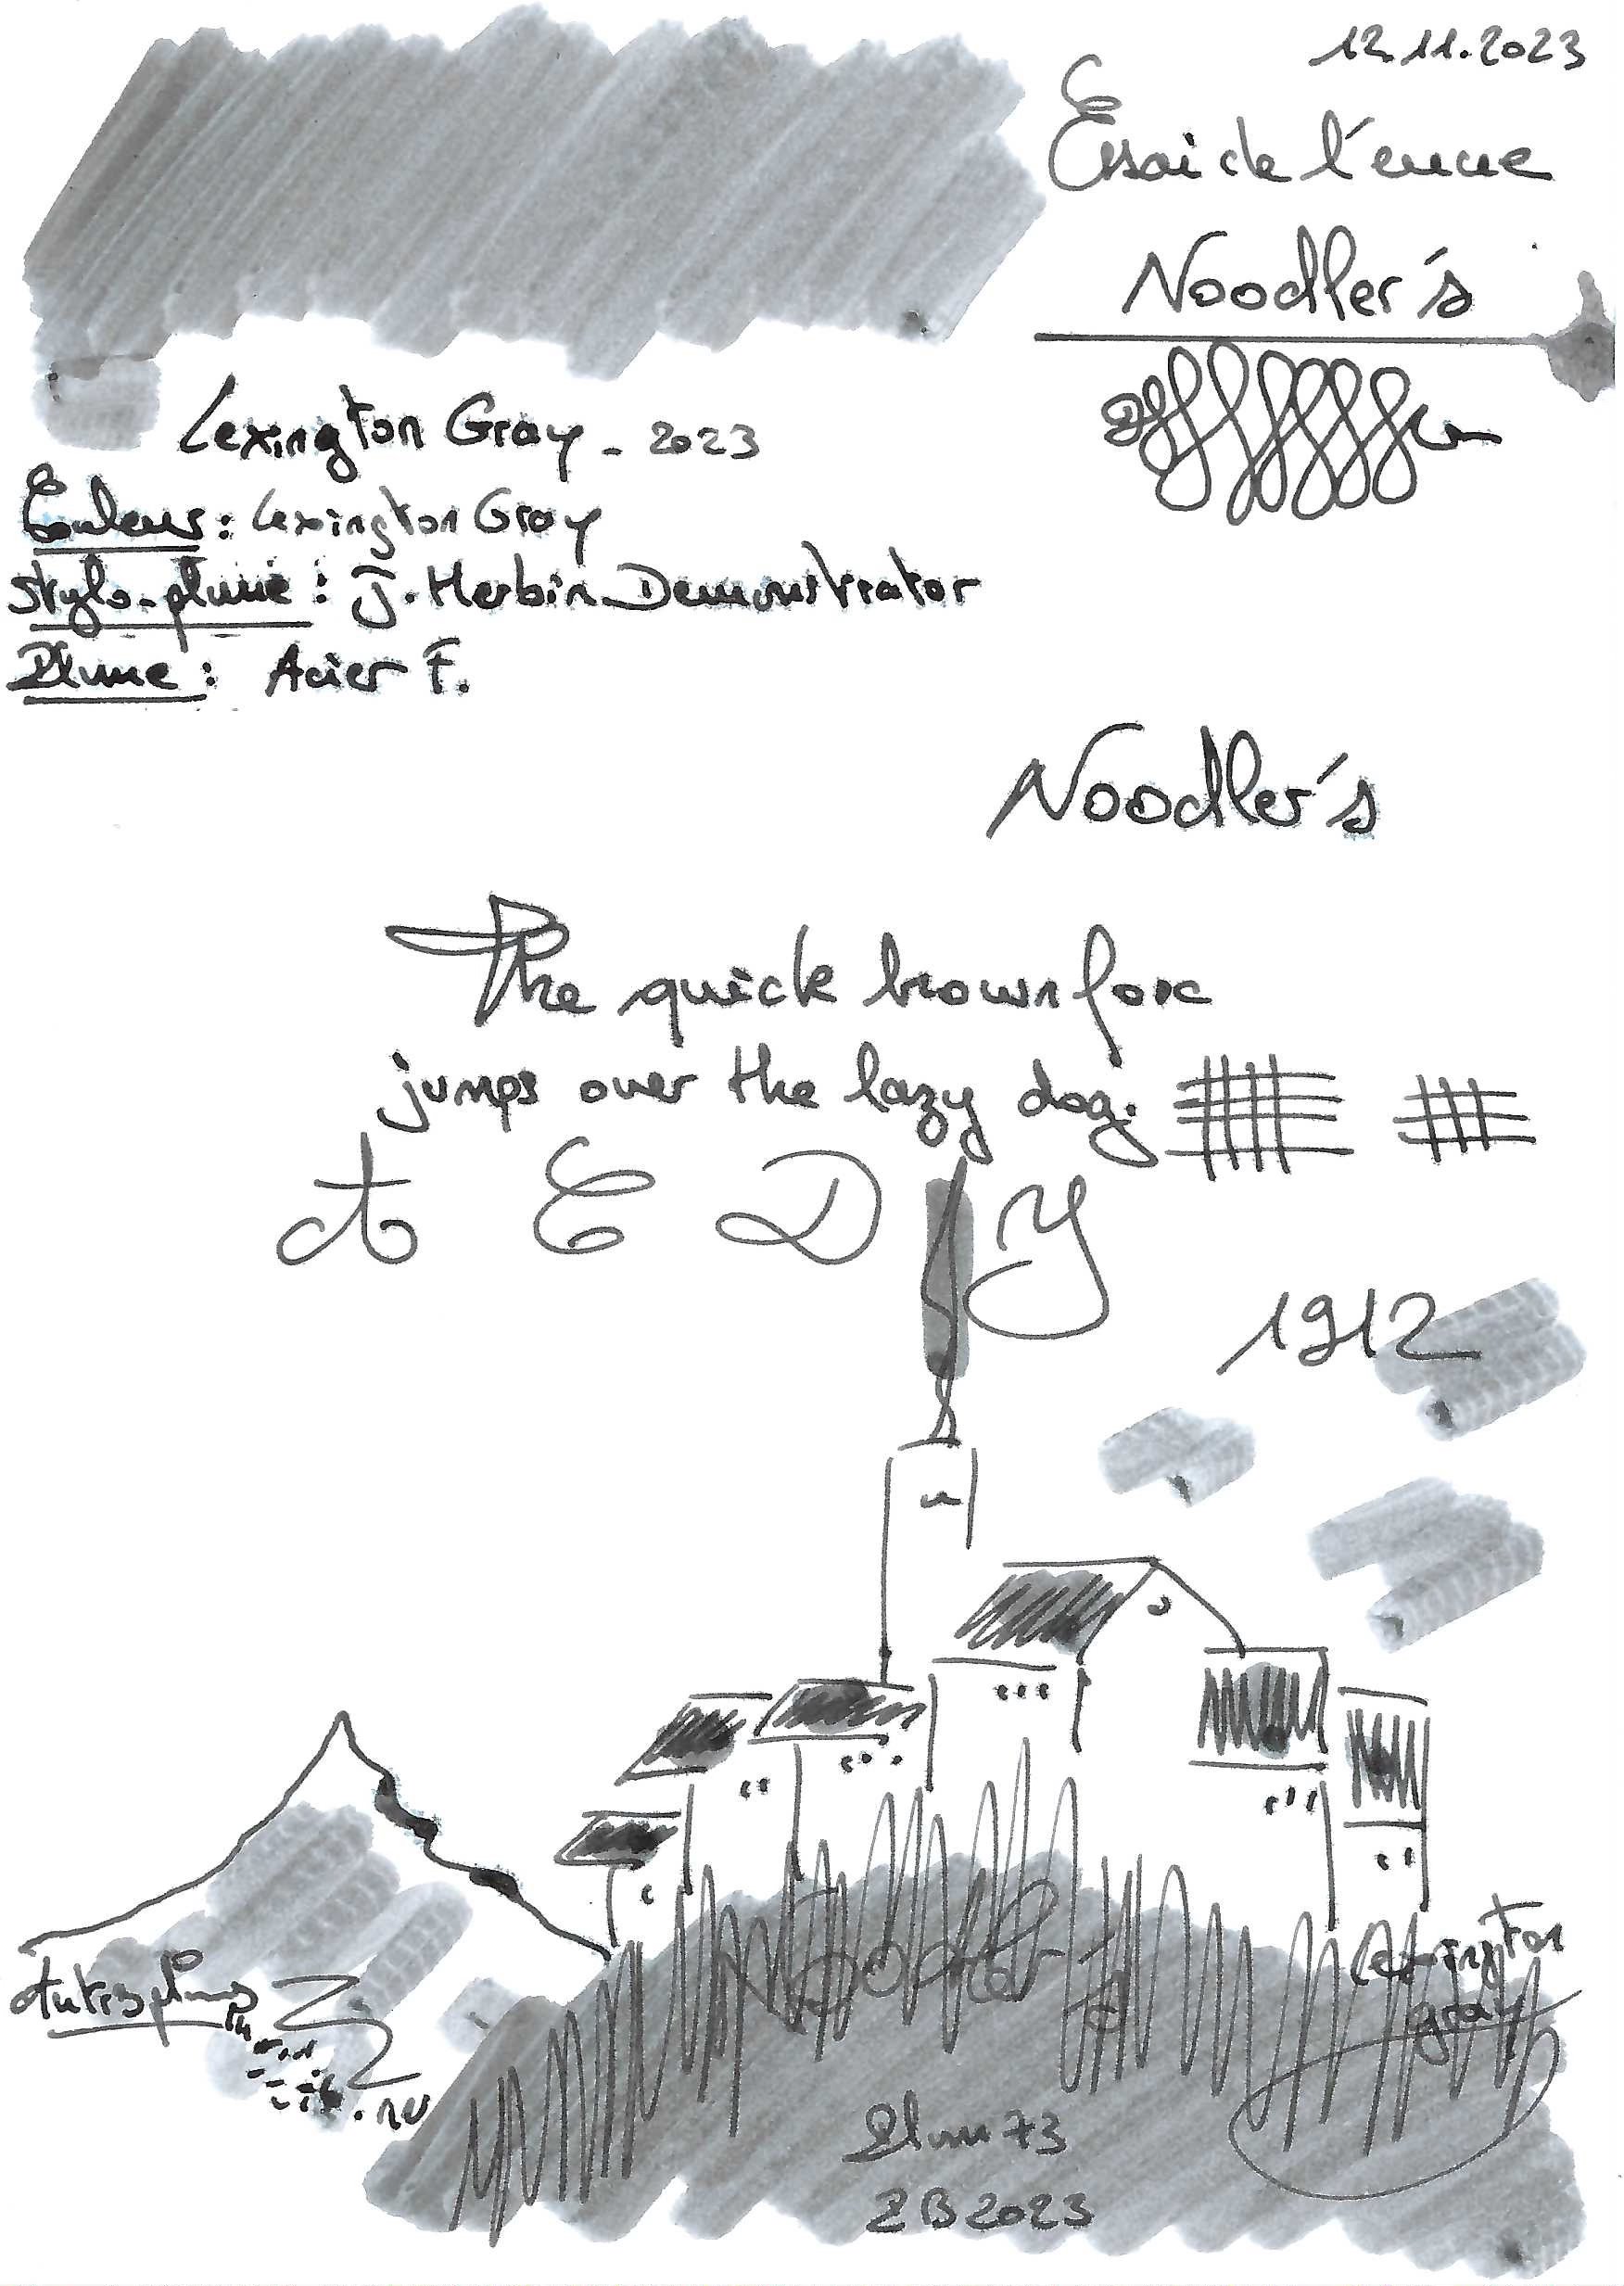 12.11.2023
Essai de l'encre
Noodler's
Lexington Gray - 2023
Couleur : Lexington Gray
Stylo-plume : J. Herbin Demonstrator
Plume : Acier F.
Noodler's
The quick brown fox
jumps over the lazy dog.
A E D Y
1912
Noodler's
Lexington
gray
Plum73
ZB2023